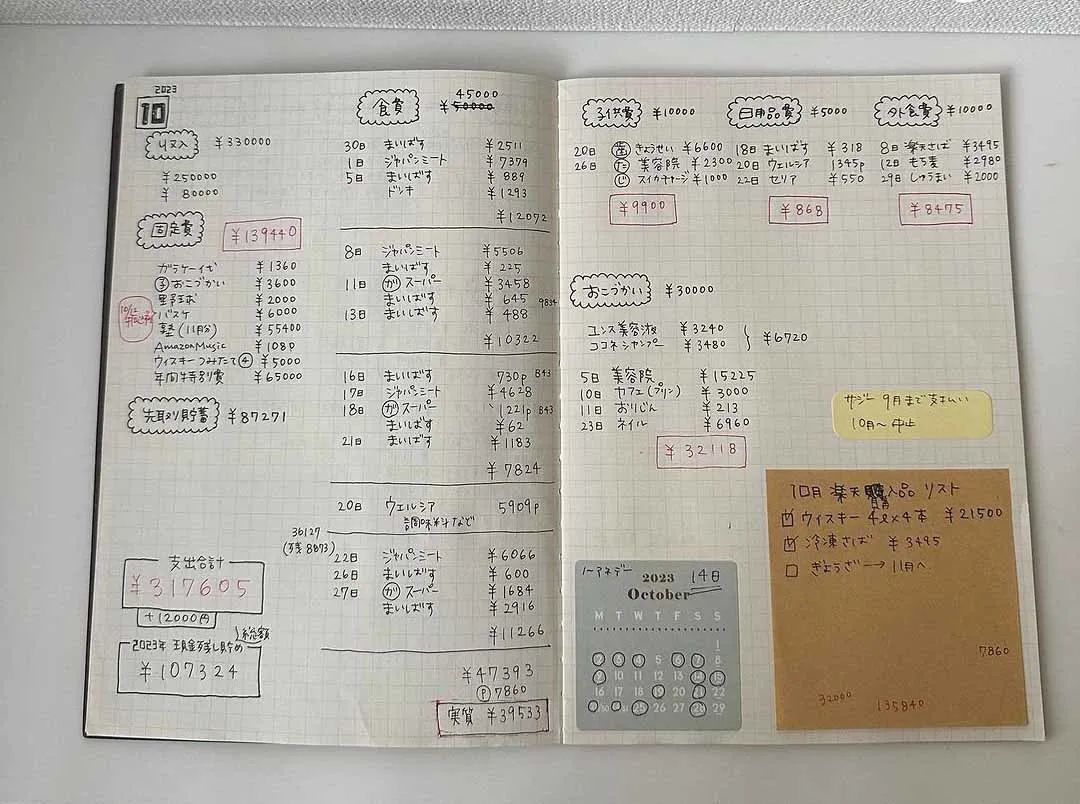 2023
10
収入 ¥330000
¥250000
¥80000
固定費 ¥139440
ガラケー代 ¥1360
子 おこづかい ¥3600
野球 ¥2000
バスケ ¥6000
塾(11月分) ¥55400
AmazonMusic ¥1080
ウィスキーつみたて④ ¥5000
年間特別費 ¥65000
10/12
先取り貯蓄 ¥87271
支出合計
¥317605
+12000円
総額
2023年 現金残し貯め
¥107324
食費 45000
¥50000
30日 まいばす ¥2511
1日 ジャパンミート ¥7379
5日 まいばす ¥889
ドンキ ¥1293
¥12072
8日 ジャパンミート ¥5506
まいばす ¥225
11日 が スーパー ¥3458
まいばす ¥645 9834
13日 まいばす ¥488
¥10322
16日 まいばす 730p B43
17日 ジャパンミート ¥4628
18日 が スーパー 1221p B43
まいばす ¥62
21日 まいばす ¥1183
¥7824
20日 ウェルシア 5909p
調味料など
36127
(残8873)
22日 ジャパンミート ¥6066
26日 まいばす ¥600
27日 が スーパー ¥1684
まいばす ¥2916
¥11266
¥47393
P 7860
実質 ¥39533
子供費 ¥10000
20日 歯 きょうせい ¥6600
26日 た 美容院 ¥2300
じ スイカチャージ ¥1000
¥9900
日用品費 ¥5000
18日 まいばす ¥318
20日 ウェルシア 1345p
22日 セリア ¥550
¥868
外食費 ¥10000
8日 楽天さば ¥3495
12日 もち麦 ¥2980
29日 しゅうまい ¥2000
¥8475
おこづかい ¥30000
ユンス美容液 ¥3240
ココネシャンプー ¥3480
¥6720
5日 美容院 ¥15225
10日 カフェ(プリン) ¥3000
11日 おりじん ¥213
23日 ネイル ¥6960
¥32118
サジー 9月まで支払い
10月〜中止
ノーマネデー 14日
2023
October
M T W T F S S
1
2 3 4 5 6 7 8
9 10 11 12 13 14 15
16 17 18 19 20 21 22
30 25 26 27 28 29
10月 楽天購入品リスト
ウィスキー 4ℓ×4本 ¥21500
冷凍さば ¥3495
ぎょうざー→11月へ
7860
32000
135840